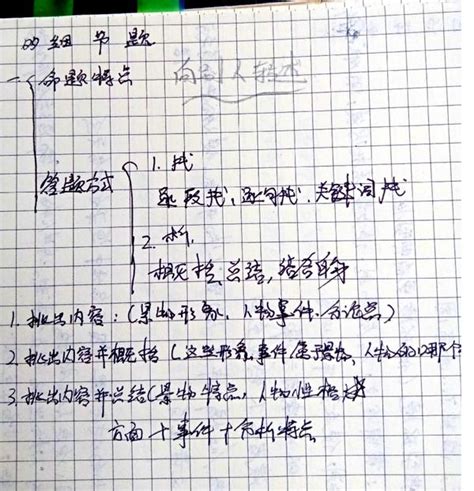 的细节题
一 命题特点
答题方式
1. 找
逐段找、逐句找、关键词找
2. 析
概括、总结, 结合自身
1. 找出内容:(景物形象, 人物事件、分论点)
2. 找出内容并概括(这些形象、事件属于景物、人物的哪个
3. 找出内容并总结(景物特点, 人物性格
方面+事件+分析特点